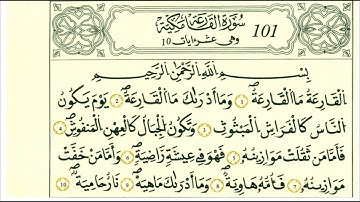 سُورَةُ القَارِعَةِ مَكِّيَّة 101
وهي عشر آيات 10
بِسْمِ اللَّهِ الرَّحْمَٰنِ الرَّحِيمِ
الْقَارِعَةُ مَا الْقَارِعَةُ ۝١ وَمَا أَدْرَاكَ مَا الْقَارِعَةُ ۝٢ يَوْمَ يَكُونُ
النَّاسُ كَالْفَرَاشِ الْمَبْثُوثِ ۝٣ وَتَكُونُ الْجِبَالُ كَالْعِهْنِ الْمَنْفُوشِ ۝٤
فَأَمَّا مَنْ ثَقُلَتْ مَوَازِينُهُ ۝٥ فَهُوَ فِي عِيشَةٍ رَاضِيَةٍ ۝٦ وَأَمَّا مَنْ خَفَّتْ
مَوَازِينُهُ ۝٧ فَأُمُّهُ هَاوِيَةٌ ۝٨ وَمَا أَدْرَاكَ مَا هِيَهْ ۝٩ نَارٌ حَامِيَةٌ ۝١٠